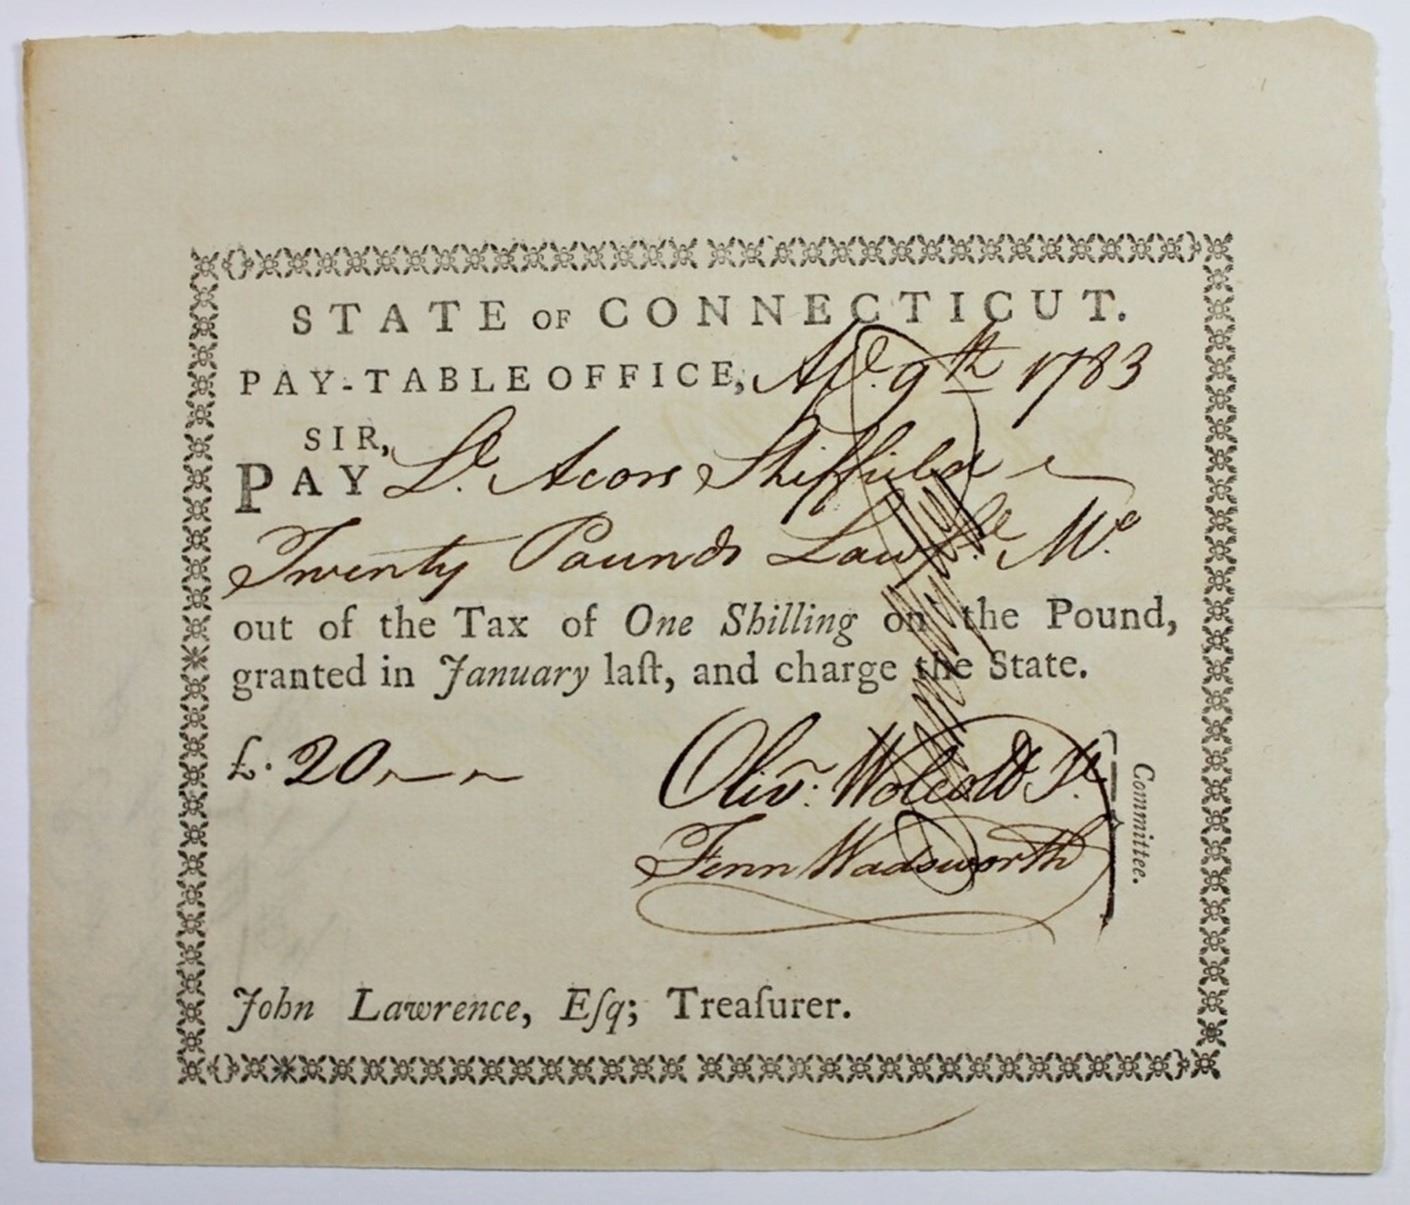 STATE OF CONNECTICUT.
PAY-TABLE OFFICE, Apl. 9th 1783
SIR,
PAY Lt. Acors Sheffield
Twenty Pounds Lawfl. Mo.
out of the Tax of One Shilling on the Pound,
granted in January laſt, and charge the State.
£. 20
Olivr. Wolcott Jr.
Fenn Wadsworth
Committee.
John Lawrence, Eſq; Treaſurer.